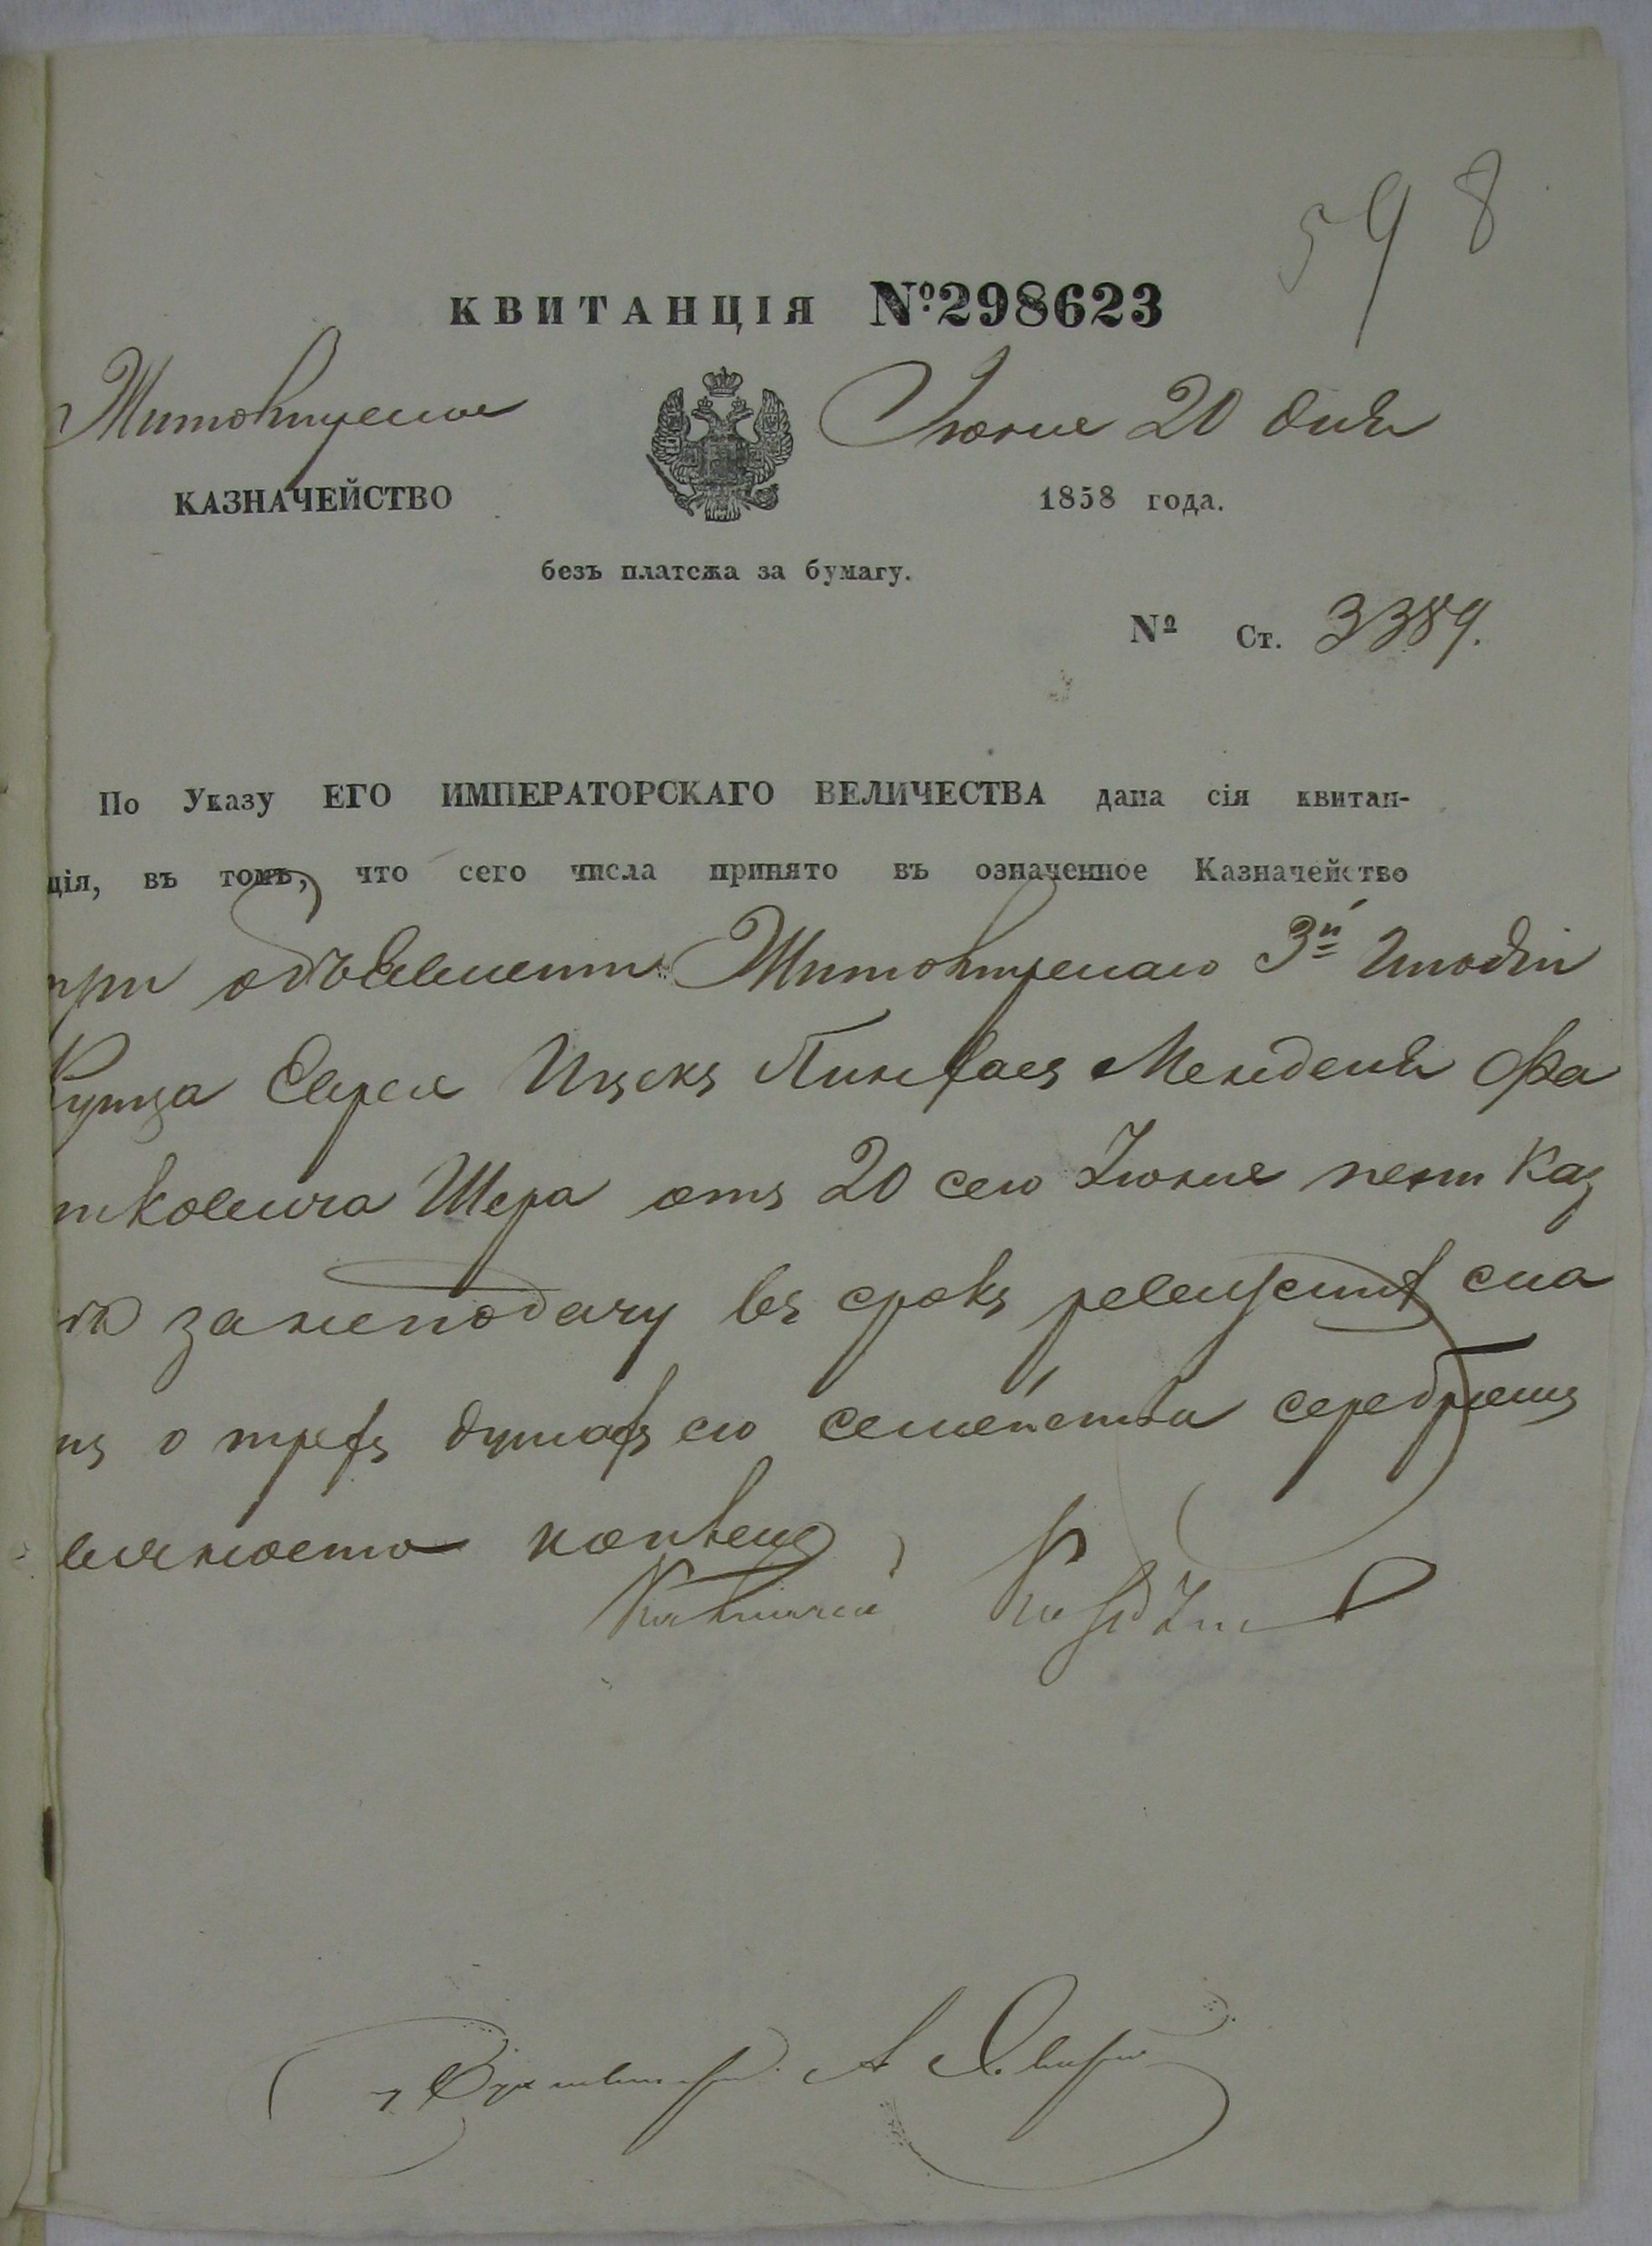 598
КВИТАНЦІЯ №298623
Житомирское Іюня 20 дня
КАЗНАЧЕЙСТВО 1858 года.
безъ платежа за бумагу.
№ Ст. 3389.
По Указу ЕГО ИМПЕРАТОРСКАГО ВЕЛИЧЕСТВА дана сія квитан-
ція, въ томъ, что сего числа принято въ означенное Казначейство
при объявленіи Житомирскаго 3й Гильдіи
Купца Еврея Ицекъ Пинхасъ Мендель
Шера отъ 20 сего Іюня пени
за неподачу въ срокъ ревизской ска
о трехъ душахъ его семейства серебромъ
копѣекъ
Казначей
Бухгалтеръ А